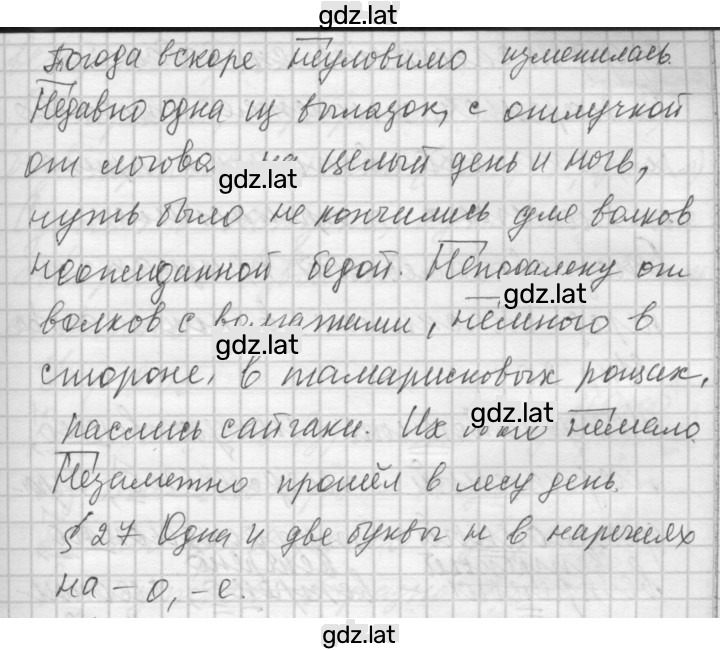 gdz.lat
Погода вскоре неуловимо изменилась.
Недавно одна из вылазок, с отлучкой
от логова на целый день и ночь,
gdz.lat
чуть было не кончились для волков
неожиданной бедой. Неподалеку от
gdz.lat
волков с волчатами, немного в
gdz.lat
стороне, в тамарисковых рощах,
gdz.lat
паслись сайгаки. Их было немало.
Незаметно прошёл в лесу день.
§ 27 Одна и две буквы н в наречиях
на -о, -е.
gdz.lat